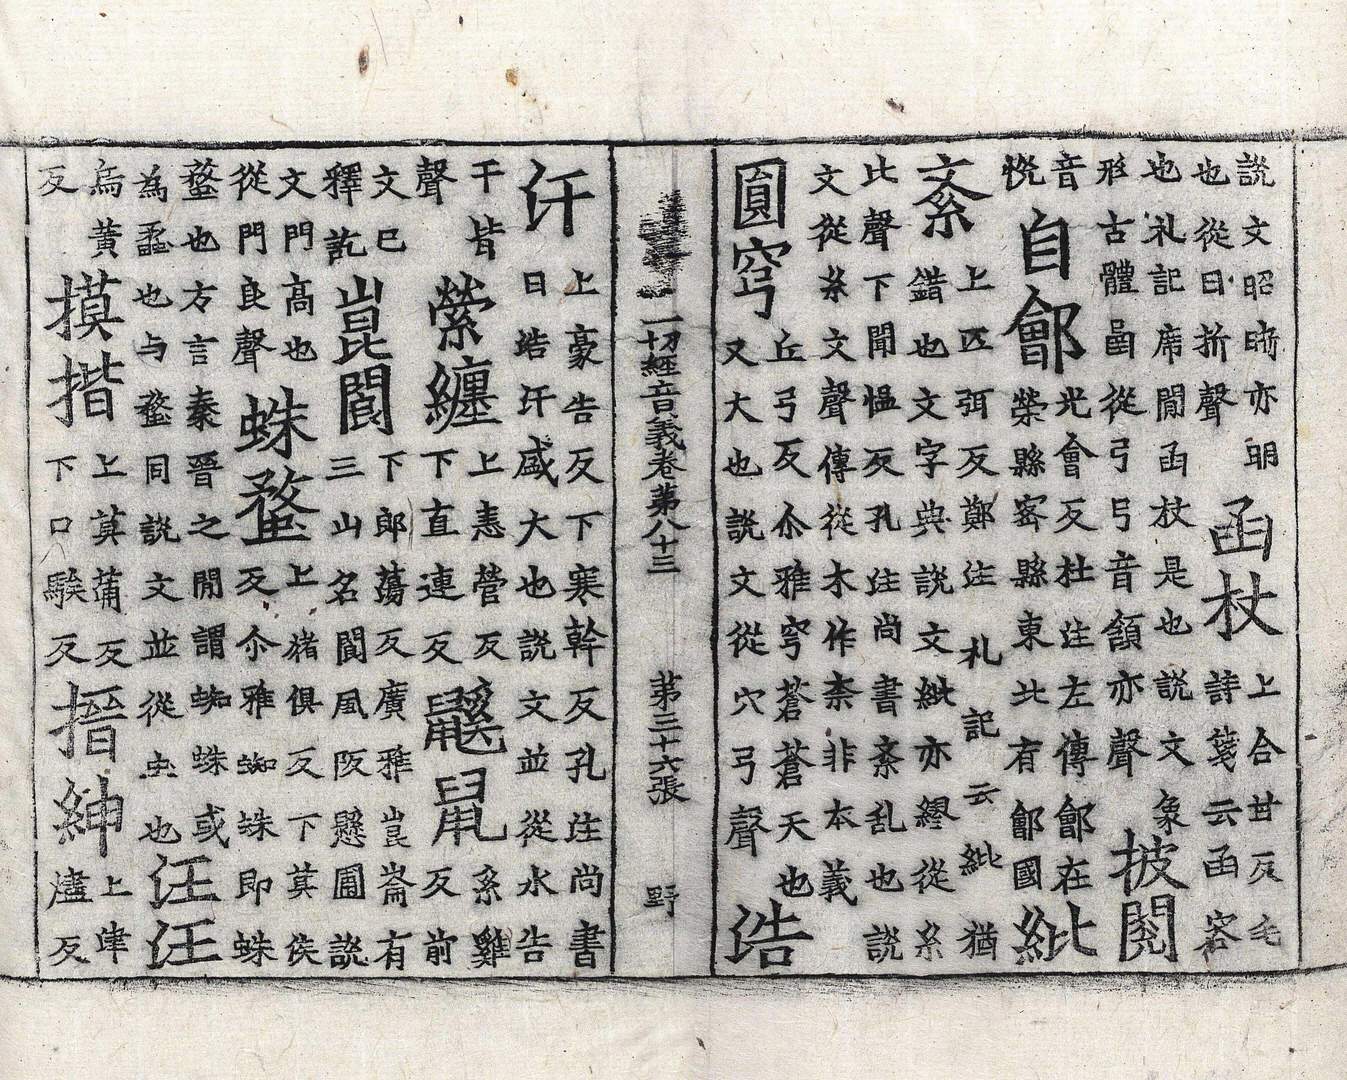 說文昭晣亦明
也從日折聲
函杖
上合甘反毛
詩箋云函容
也礼記席間函杖是也說文象
形古體𢎘從弓弓音頷亦聲
披閱
音
怳
自鄶
光會反杜注左傳鄶在
滎縣密縣東北有鄶國
紕
紊
上匹弭反鄭注札記云紕猶
錯也文字典說文紕亦繆從糸
比聲下聞愠反孔注尚書紊乱也說
文從糸文聲傳從木作㮈非本義
圓穹
丘弓反尒雅穹蒼蒼天也
又大也說文從穴弓聲
浩
一切經音義卷第八十三 第三十六張 野
汗
上豪告反下寒幹反孔注尚書
曰浩汗盛大也說文並從水告
干皆
聲
縈纏
上恚營反
下直連反
鼷鼠
系雞
反前
文巳
釋訖
崑閬
下郎蕩反廣雅崑崙有
三山名閬風阪懸圃說
文門高也
從門良聲
蛛蝥
上猪俱反下莫侯
反尒雅蜘蛛即蛛
蝥也方言秦晉之間謂蜘蛛或
為蟊也与蝥同說文並從虫也
汪汪
烏黃
反
摸揩
上莫蒲反
下口駭反
搢紳
上津
燼反